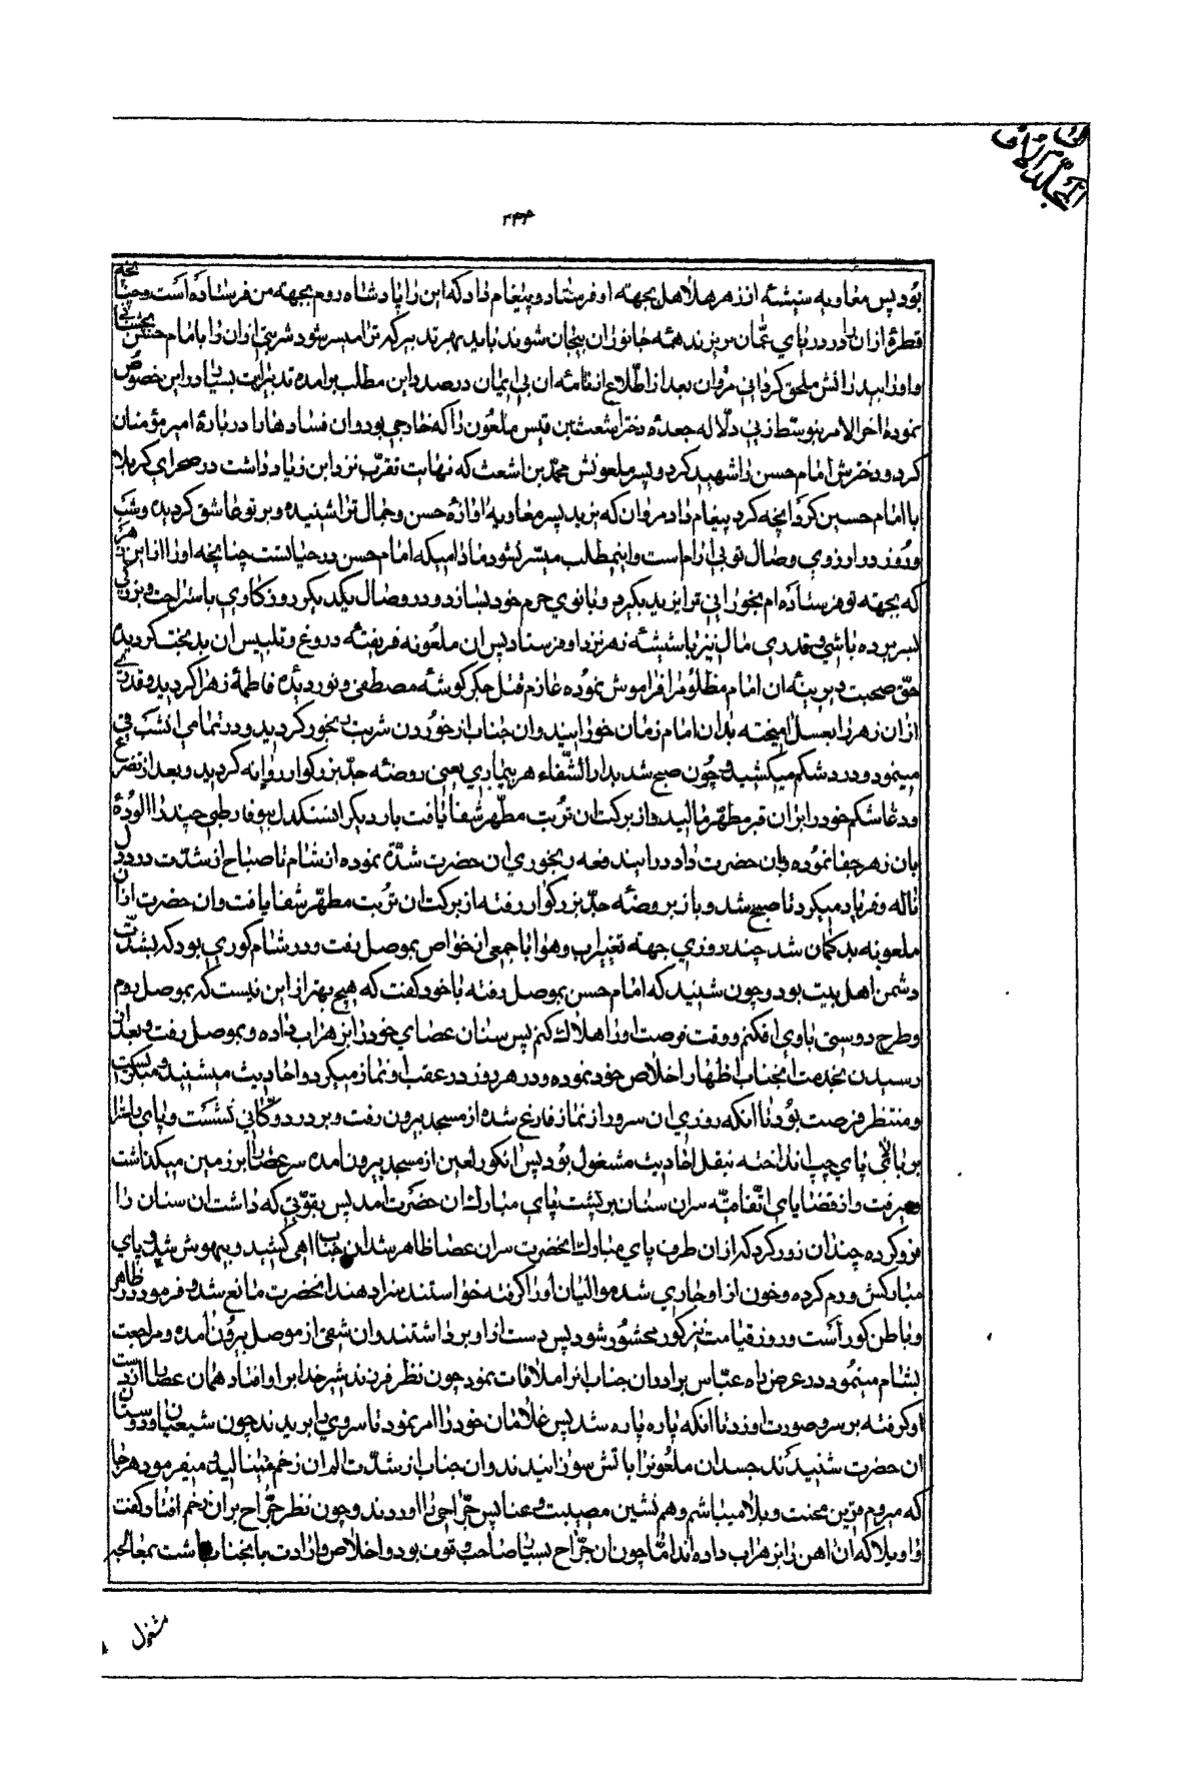 المجلد الاول
۲۴۴
بود پس معاویه شیشهٔ از زهر هلاهل بجهته او فرستاد و پیغام داد که این را پادشاه روم بجهته من فرستاده است و چنانچه
قطرهٔ ازان در دریای عمان بریزند همه جانوران بیجان شوند باید بهر تدبیر که ترا میسر شود شربتی ازان را بامام حسن بچشانی
و او را بپدرانش ملحق کردانی مروان بعد از اطلاع از نامه ان بی ایمان درصدد این مطلب برامده تدبیرات بسیار در این خصوص
نموده اخر الامر بتوسط زنی دلاله جعده دختر اشعث بن قیس ملعون را که خارجی بود و ان فسادها را در بارهٔ امیر مؤمنان
کرد و دخترش امام حسن را شهید کرد و پسر ملعونش محمد بن اشعث که نهایت تقرب نزد ابن زیاد داشت در صحرای کربلا
با امام حسین کرد انچه کرد پیغام داد مروان که یزید پسر معاویه اوازهٔ حسن و جمال ترا شنیده و بر تو عاشق کردیده و شب
و روز در ارزوی وصال تو بی ارام است و اینمطلب میسر نشود مادامیکه امام حسن در حیاتست چنانچه او را از این زهر
که بجهته تو فرستاده ام بخورانی ترا یزید بکیرد و بانوی حرم خود بسازد و در وصال یکدیکر روزکاری باستراحت و بزرکی
بسر برده باشی و قدری مال نیز با شیشه زهر نزد او فرستاد پس ان ملعونه فریفتهٔ دروغ و تلبیس ان بدبخت کردیده
حق صحبت دیرینه ان امام مظلوم را فراموش نموده عازم قتل جکر کوشه مصطفی و نور دیدهٔ فاطمهٔ زهرا کردید و قدری
ازان زهر را بعسل امیخته بدان امام زمان خورانید و ان جناب از خوردن شربت رنجور کردید و در تمامی انشب قی
مینمود و درد شکم میکشید و چون صبح شد بدار الشفاء هر بیماری یعنی روضه جد بزرکوار روانه کردید و بعد از تضرع
و دعا شکم خود را بران قبر مطهر مالید و از برکت ان تربت مطهر شفا یافت بار دیکر انسنکدل بیوفا رطبی چند را الودهٔ
بان زهر جفا نموده و بان حضرت داد در اینددفعه رنجوری ان حضرت شدة نموده از شام تا صباح از شدت درد دل
ناله و فریاد میکرد تا صبح شد و باز بروضه جد بزرکوار رفته از برکت ان تربت مطهر شفا یافت و ان حضرت ازان
ملعونه بدکمان شد چند روزی جهة تغییر اب و هوا با جمعی از خواص بموصل رفت و در شام کوری بود که بشدت
دشمن اهل بیت بود و چون شنید که امام حسن بموصل رفته با خود کفت که هیچ بهتر از این نیست که بموصل روم
و طرح دوستی با وی افکنم و وقت فرصت او را هلاک کنم پس سنان عصای خود را بزهر اب داده و بموصل رفت و بعد از
رسیدن بخدمت انجناب اظهار اخلاص خود نموده و در هر روز در عقب او نماز میکرد و احادیث میشنید و میکریست
و منتظر فرصت بود تا انکه روزی ان سرور از نماز فارغ شده از مسجد بیرون رفت و بر در دوکانی نشست و پای راست را
بر بالای پای چپ انداخته بنقل احادیث مشغول بود پس انکور لعین از مسجد بیرون امده سر عصا را بر زمین میکذاشت
و میرفت و از قضایای اتفاقیه سر ان سنان بر پشت پای مبارک ان حضرت امد پس بقوتی که داشت ان سنان را
فرو کرده چندان زور کرد که از ان طرف پای مبارک انحضرت سر ان عصا ظاهر شد ان جناب اهی کشید و بیهوش شد و پای
مبارکش ورم کرده و خون از او جاری شد موالیان او را کرفته خواستند سزا دهند انحضرت مانع شد و فرمود در ظاهر
و باطن کور است و روز قیامت نیز کور محشور شود پس دست از او برداشتند و ان شقی از موصل بیرون امده و مراجعت
بشام مینمود در عرض راه عباس برادر ان جناب او را ملاقات نمود چون نظر فرزند شیر خدا بر او افتاد همان عصا را از دست
او کرفته بر سر و صورت او زد تا انکه پاره پاره شد پس غلامان خود را امر نمود تا سر وی را بریدند چون شیعیان و دوستان
ان حضرت شنیدند جسد ان ملعون را باتش سوزانیدند و ان جناب از شدت الم ان زخم مینالید و میفرمود هر جا
که میروم قرین محنت و بلا میباشم و هم نشین مصیبت و عنا پس جراحی را اوردند و چون نظر جراح بران زخم افتاد کفت
واویلا که ان اهن را بزهر اب داده اند اما چون ان جراح بسیار صاحب وقوف بود و اخلاص و ارادت بانجناب داشت بمعالجه
مشغول